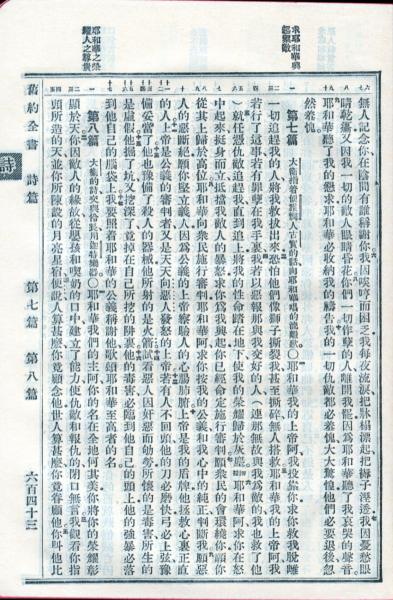 求耶和華興
起懲敵
無人記念你在陰間有誰稱謝你我因唉哼而困乏我每夜流淚把牀榻漂起把褥子溼透我因憂愁眼
睛乾癟又因我一切的敵人眼睛昏花你們一切作孽的人離開我罷因爲耶和華聽了我哀哭的聲音
耶和華聽了我的懇求耶和華必收納我的禱告我的一切仇敵都必羞愧大大驚惶他們必要退後忽
然羞愧
第七篇 大衞指着便雅憫人古實的話向耶和華唱的流離歌○耶和華我的上帝阿我投靠你求你救我脫離
一切追趕我的人將我救拔出來恐怕他們像獅子撕裂我甚至撕碎無人搭救耶和華我的上帝阿我
若行了這事若有罪孽在我手裏我若以惡報那與我交好的人(連那無故與我爲敵的我也救了他
)就任憑仇敵追趕我直到追上將我的性命踏在地下使我的榮耀歸於灰塵耶和華阿求你在怒
中起來挺身而立抵擋我敵人的暴怒求你爲我興起你已經命定施行審判願衆民的會環繞你願你
從其上歸於高位耶和華向衆民施行審判耶和華阿求你按我的公義和我心中的純正判斷我願惡
人的惡斷絕願你堅立義人因爲公義的上帝察驗人的心腸肺腑上帝是我的盾牌他拯救心裏正直
的人上帝是公義的審判者又是天天向惡人發怒的上帝若有人不回頭他的刀必磨快弓必上弦豫
備妥當了他也豫備了殺人的器械他所射的是火箭試看惡人因奸惡而劬勞所懷的是毒害所生的
是虛假他掘了坑又挖深了竟掉在自己所挖的阱裏他的毒害必臨到他自己的頭上他的強暴必落
到他自己的腦袋上我要照着耶和華的公義稱謝他歌頌耶和華至高者的名
耶和華之榮
耀人之尊貴
第八篇 大衞的詩交與伶長用迦特樂器○耶和華我們的主阿你的名在全地何其美你將你的榮耀彰
顯於天你因敵人的緣故從嬰孩和喫奶的口中建立了能力使仇敵和報仇的閉口無言我觀看你指
頭所造的天並你所陳設的月亮星宿便說人算甚麼你竟顧念他世人算甚麼你竟眷顧他你叫他比
舊約全書 詩篇 第七篇 第八篇 六百四十三
詩